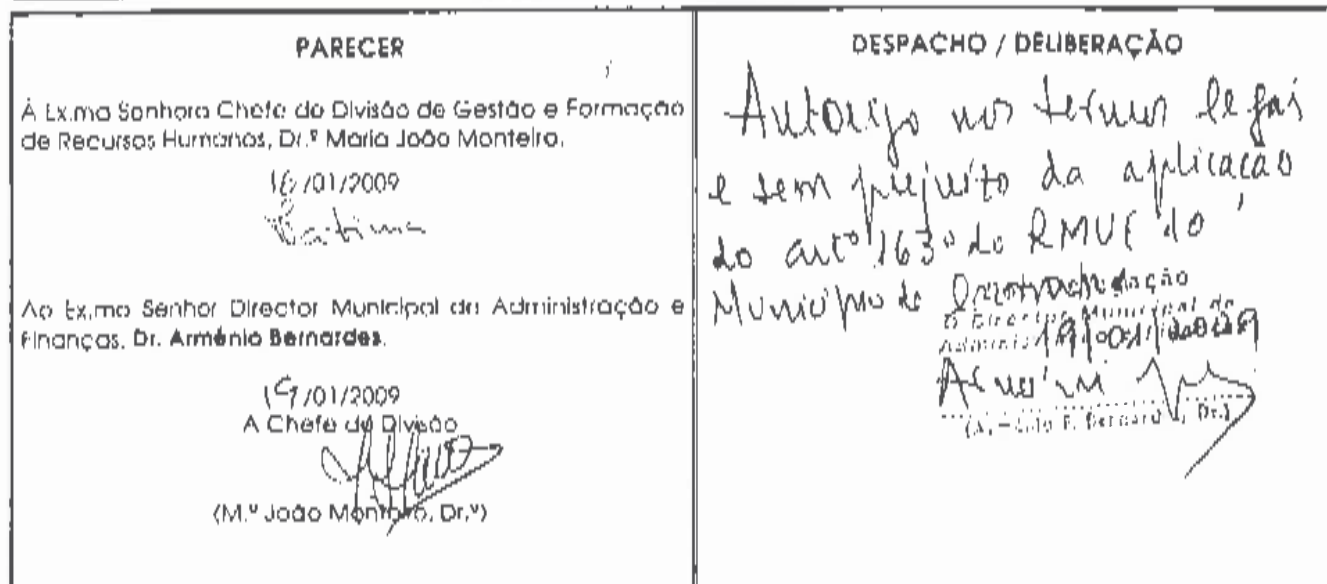 PARECER
À Ex.ma Senhora Chefe de Divisão de Gestão e Formação
de Recursos Humanos, Dr.ª Maria João Monteiro.
16/01/2009
Ao Ex.mo Senhor Director Municipal de Administração e
Finanças, Dr. Arménio Bernardes.
19/01/2009
A Chefe de Divisão
(M.ª João Monteiro, Dr.ª)
DESPACHO / DELIBERAÇÃO
Autorizo nos termos legais
e sem prejuízo da aplicação
do artº 163º do RMUE do
Município de
O Director Municipal de
19/01/2009